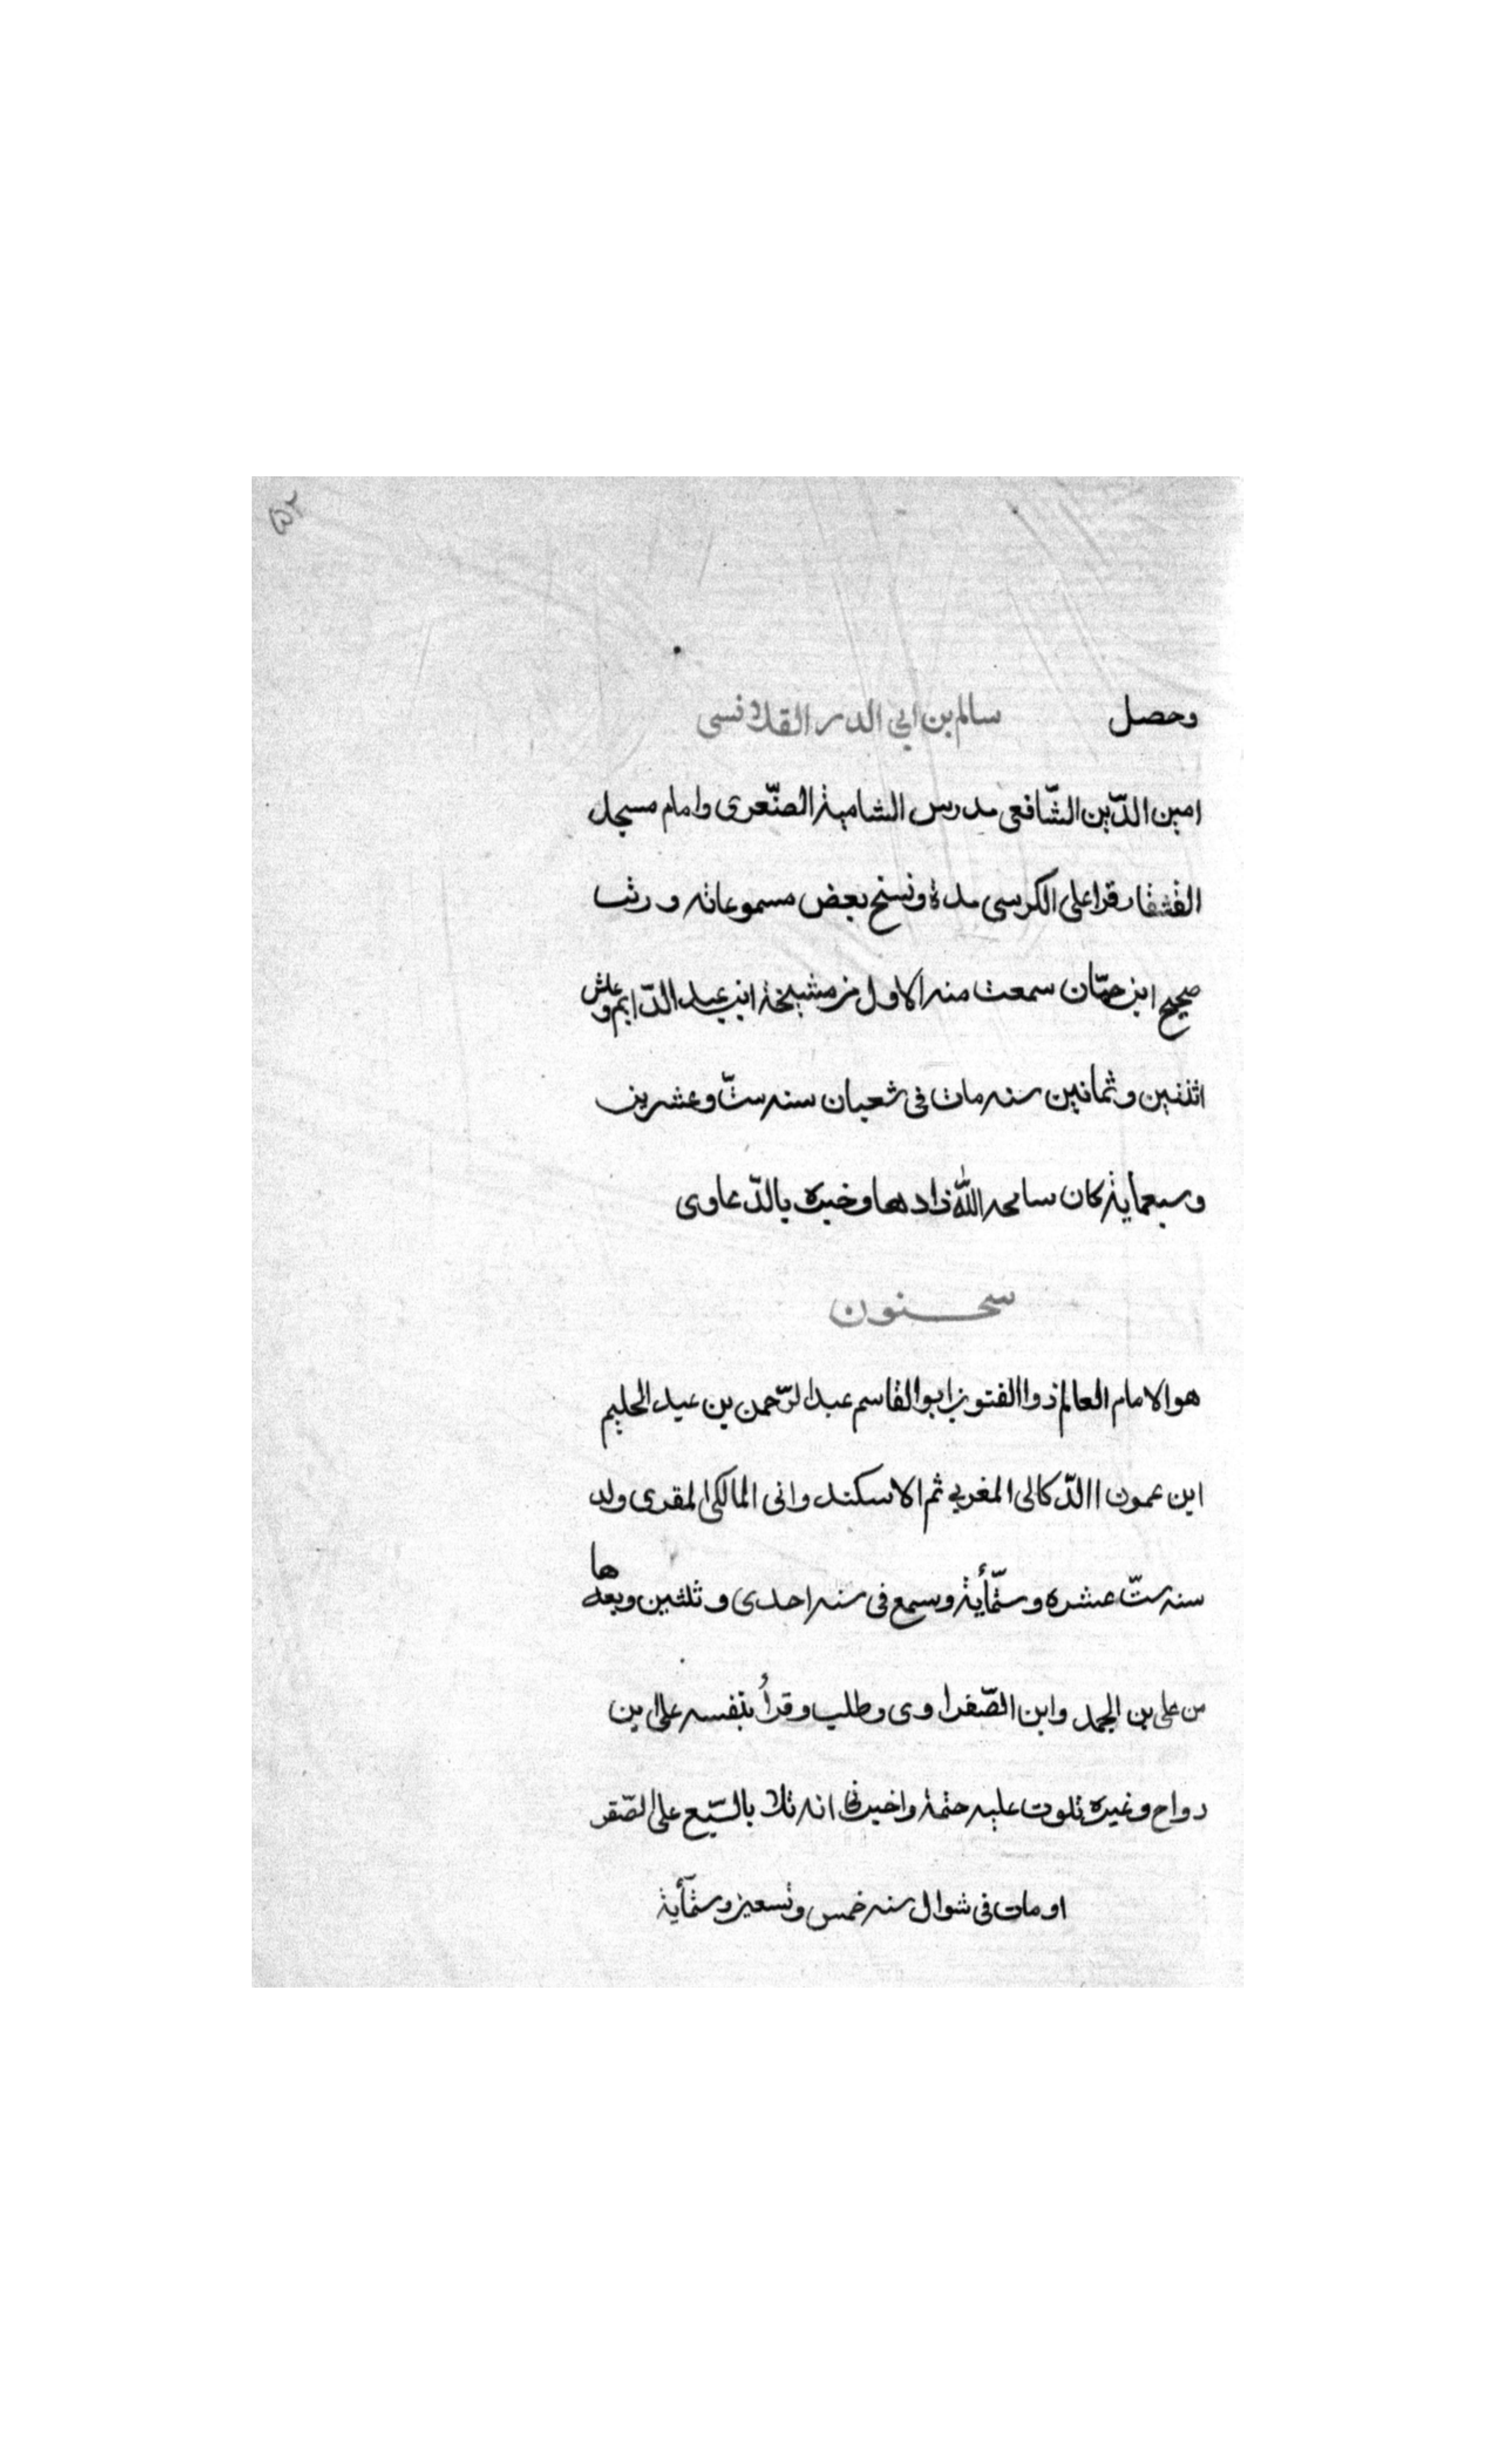 ٥٢
وحصل سالم بن ابي الدر القلانسى
امين الدّين الشّافعى مدرس الشامية الصنّعرى وامام مسجد
الفشقار قرا على الكرسى مدة ونسخ بعض مسموعاته ورتب
صحيح ابن حبّان سمعت منه الاول من مشيخة ابن عبد الدّايم وعاش
اثنين وثمانين سنه مات فى شعبان سنه ستّ وعشرين
وسبعماية كان سامحه اللّٰه ذا دها وخبره بالدّعاوى
سحنون
هو الامام العالم ذوا الفتون ابو القاسم عبد الرّحمن بن عبد الحليم
ابن عمون االدّكالى المغربي ثم الاسكندرانى المالكى المقرى ولد
سنه ستّ عشره وستّمأية وسمع فى سنه احدى وثلثين وبعدها
من على بن الجمد وابن الصّفراوى وطلب وقرأ بنفسه على ابن
رواح وغيره تلوت عليه ختمة واخبرنى انه تلا بالسّبع على الصّفر
او مات فى شوال سنه خمس وتسعين وستمأية